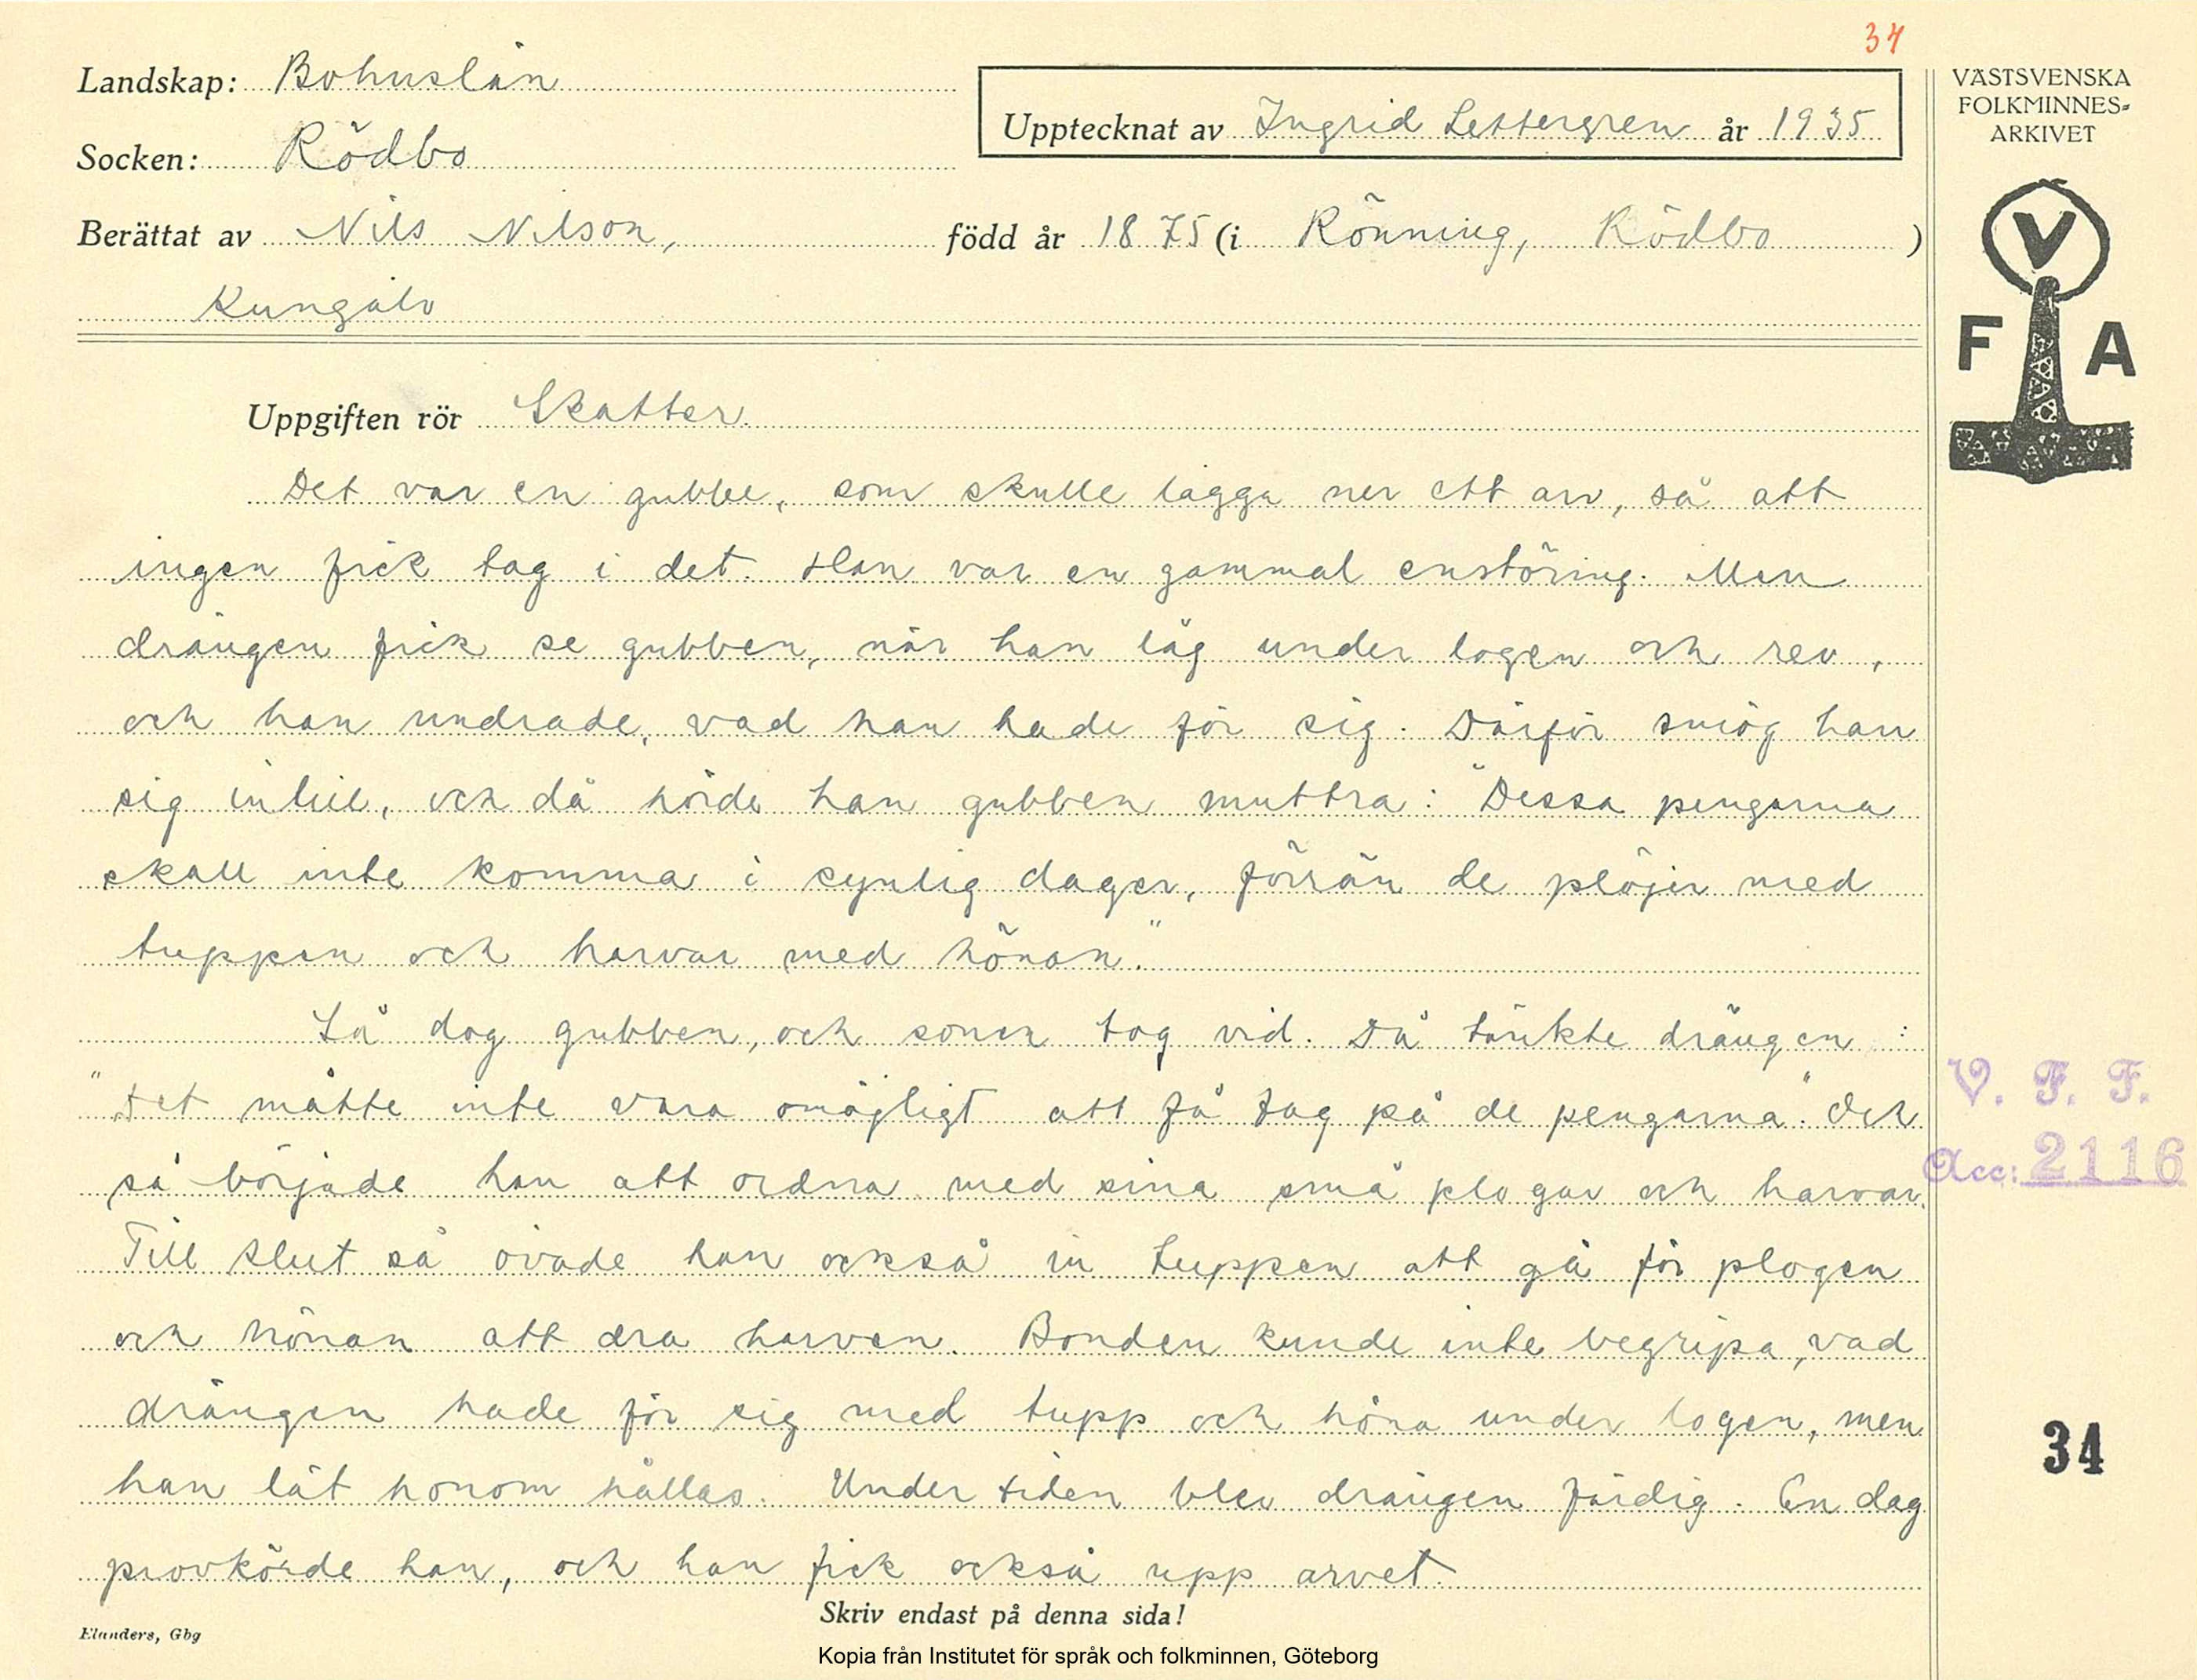 34
Landskap: Bohuslän
Socken: Rödbo
Upptecknat av Ingrid Lettergren år 1935
Berättat av Nils Nilson, född år 1875 (i Rönning, Rödbo )
Kungälv
VÄSTSVENSKA
FOLKMINNES-
ARKIVET
V
F A
Uppgiften rör Skatter.
Det var en gubbe, som skulle lägga ner ett arv, så att
ingen fick tag i det. Han var en gammal enstöring. Men
drängen fick se gubben, när han låg under logen och rev,
och han undrade, vad han hade för sig. Därför smög han
sig intill, och då hörde han gubben muttra: "Dessa pengarna
skall inte komma i synlig dager, förrän de plöjer med
tuppen och harvar med hönan."
Så dog gubben, och sonen tog vid. Då tänkte drängen :
"Det måtte inte vara omöjligt att få tag på de pengarna." Och
så började han att ordna med sina små plogar och harvar.
Till slut så övade han också in tuppen att gå för plogen
och hönan att dra harven. Bonden kunde inte begripa, vad
drängen hade för sig med tupp och höna under logen, men
han lät honom hållas. Under tiden blev drängen färdig. En dag
provkörde han, och han fick också upp arvet.
V. F. F.
Acc: 2116
34
Skriv endast på denna sida!
Elanders, Gbg
Kopia från Institutet för språk och folkminnen, Göteborg